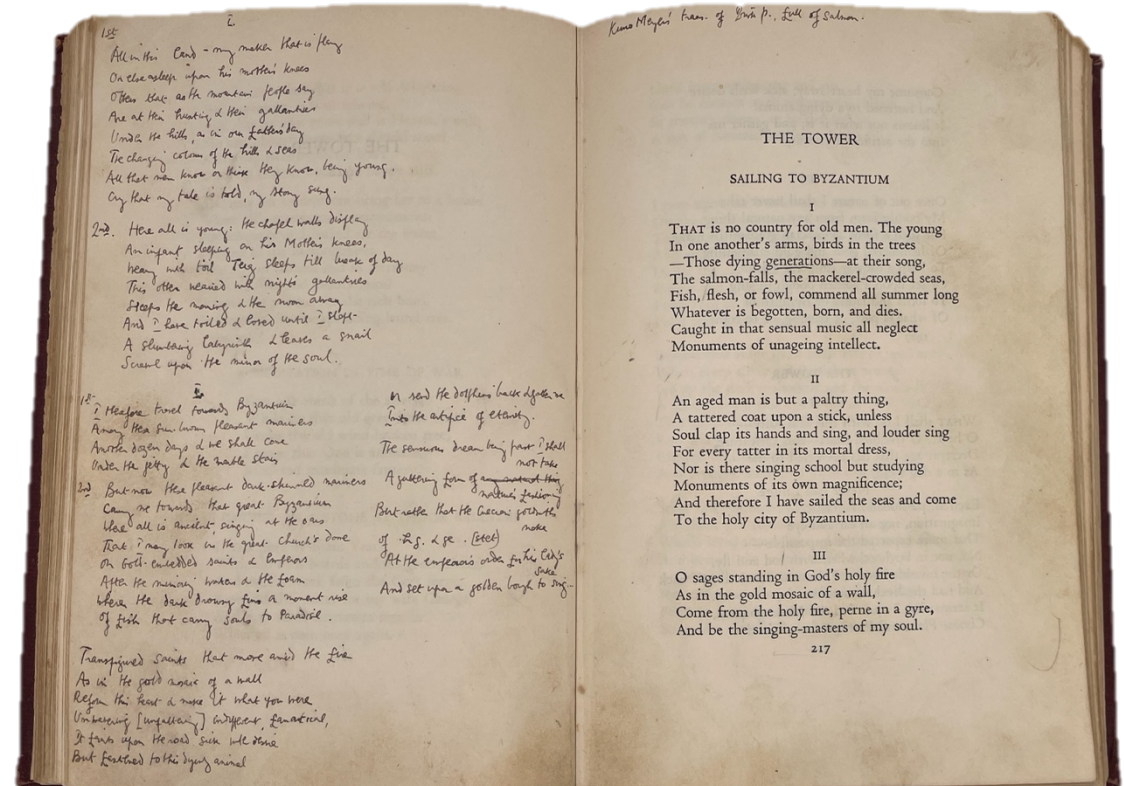 I.
1st
All in this land - my maker that is play
Or else asleep upon his mother's knees
Others that as the mountain people say
Are at their hunting & their gallantries
Under the hills, as in our father's day
The changing colour of the hills & seas
All that men know or think they know, being young.
Cry that my tale is told, my story sung.
2nd. Here all is young: the chapel walls display
An infant sleeping on his Mother's knees,
Weary with toil Teig sleeps till break of day
This other wearied with night's gallantries
Sleeps the morning & the noon away
And I have toiled & loved until I slept-
A slumbering labyrinth & leaves a snail
Scrawl upon the mirror of the soul.
I.
1st
I therefore travel towards Byzantium
Among these sun-brown pleasant mariners
Another dozen days & we shall come
Under the jetty & the marble stair
2nd But now these pleasant dark-skinned mariners
Carry me towards that great Byzantium
Where all is ancient, singing at the oars
That I may look in the great Church's dome
On Gold-embedded saints & Emperors
After the mirroring waters & the foam
Where the dark drowsy fins a moment rise
Of fish that carry souls to Paradise.
Transfigured saints that move amid the fire
As in the gold mosaic of a wall
Reform this heart & make it what you were
Unwavering [unfaltering] indifferent, fanatical,
It faints upon the road sick with desire
But fastened to this dying animal
Or send the dolphin's back & gather me
Into the artifice of eternity.
The sensuous dream being past I shall
not take
A guttering form of any natural thing
nature's fashioning
But rather that the Grecian goldsmiths
make
of h.g. & g.e. (stet)
At the emperor's order for his Lady's
sake
And set upon a golden bough to sing-
Kuno Meyer's trans. of Irish p., full of salmon.
THE TOWER
SAILING TO BYZANTIUM
I
THAT is no country for old men. The young
In one another's arms, birds in the trees
—Those dying generations—at their song,
The salmon-falls, the mackerel-crowded seas,
Fish, flesh, or fowl, commend all summer long
Whatever is begotten, born, and dies.
Caught in that sensual music all neglect
Monuments of unageing intellect.
II
An aged man is but a paltry thing,
A tattered coat upon a stick, unless
Soul clap its hands and sing, and louder sing
For every tatter in its mortal dress,
Nor is there singing school but studying
Monuments of its own magnificence;
And therefore I have sailed the seas and come
To the holy city of Byzantium.
III
O sages standing in God's holy fire
As in the gold mosaic of a wall,
Come from the holy fire, perne in a gyre,
And be the singing-masters of my soul.
217